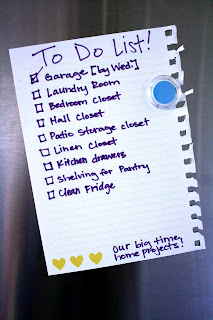 To Do List!
Garage [by Wed.]
Laundry Room
Bedroom Closet
Hall Closet
Patio Storage closet
Linen Closet
Kitchen drawers
Shelving for Pantry
Clean Fridge
Our big time,
home projects!